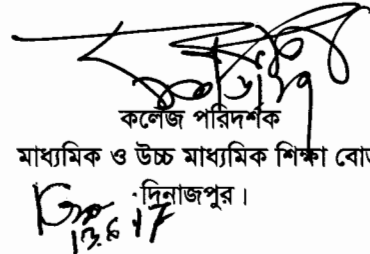 কলেজ পরিদর্শক
মাধ্যমিক ও উচ্চ মাধ্যমিক শিক্ষা বোর্ড
দিনাজপুর।
13.6.17